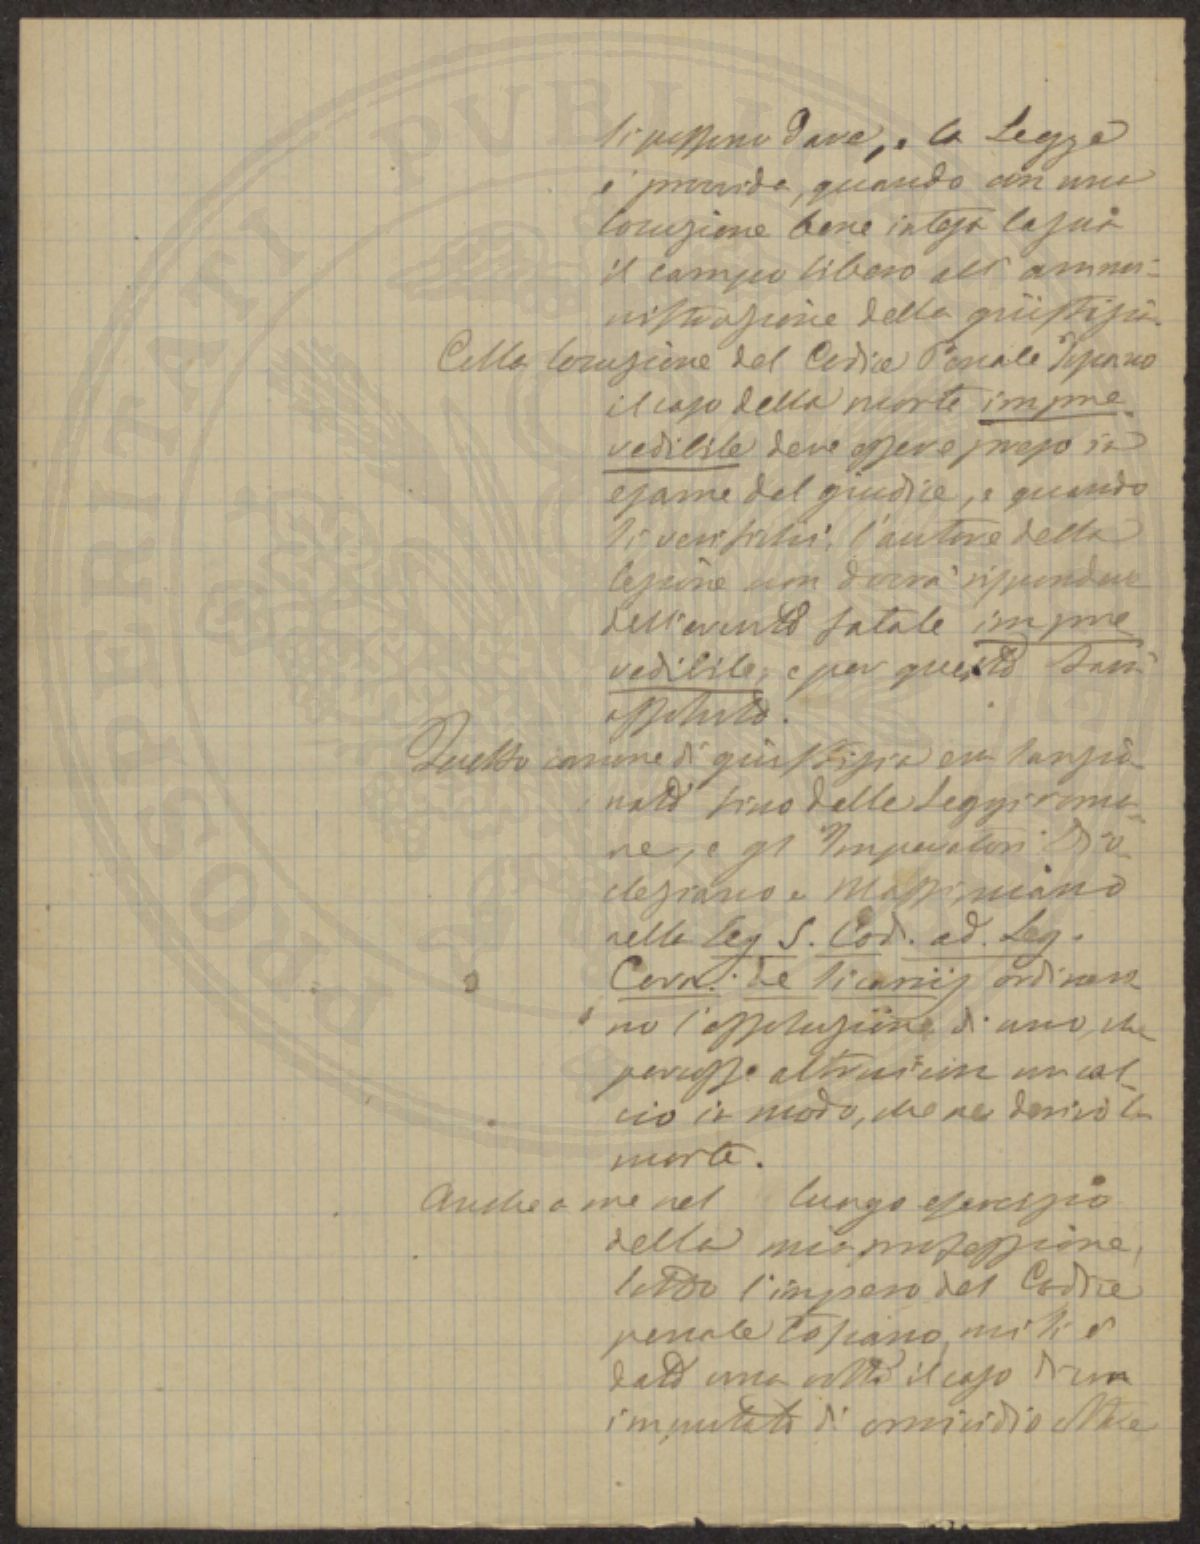 si possono dare, e la Legge
è provvida, quando con una
locuzione bene intesa lascia
il campo libero all'ammi-
nistrazione della giustizia.
Colla locuzione del Codice Penale Toscano
il caso della morte impre-
vedibile deve essere preso in
esame dal giudice, e quando
si verifichi, l'autore della
lesione non dovrà rispondere
dell'evento fatale impre
vedibile, e per questo sarà
assoluto.
Questo canone di giustizia era sanzio-
nato fino dalle Leggi roma-
ne, e gl'Imperatori Dio-
cleziano e Massimiano
nella Leg 5. Cod. ad. Leg.
Corn. de sicariis ordinaro-
no l'assoluzione di uno, che
percosse altrui con un cal-
cio in modo, che ne derivò la
morte.
Anche a me nel lungo esercizio
della mia professione,
sotto l'impero del Codice
penale Toscano, mi si è
dato una volta il caso di un
imputato di omicidio oltre
POSPERITATI PUBLI